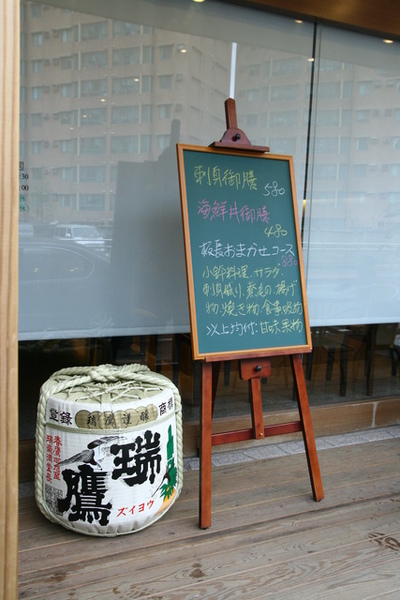 刺身御膳 580
海鮮丼御膳
480
板長おまかせコース
880
小鉢料理、サラダ、
刺身盛り、煮もの、揚げ
物、焼き物/食事、吸物
以上均付:甘味果物
登録 商標
瑞鷹
ズイヨウ